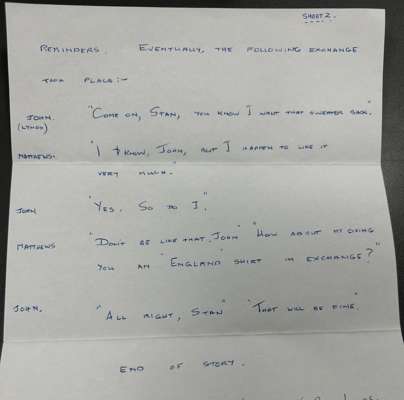 SHEET 2.
REMINDERS. EVENTUALLY, THE FOLLOWING EXCHANGE
TOOK PLACE:-
JOHN. "COME ON, STAN, YOU KNOW I WANT THAT SWEATER BACK."
(LYNCH)
MATTHEWS. "I KNOW, JOHN, BUT I HAPPEN TO LIKE IT
VERY MUCH."
JOHN "YES. SO DO I."
MATTHEWS "DON'T BE LIKE THAT, JOHN" "HOW ABOUT MY GIVING
YOU AN "ENGLAND" SHIRT IN EXCHANGE?"
JOHN. "ALL RIGHT, STAN" "THAT WILL BE FINE".
END OF STORY.